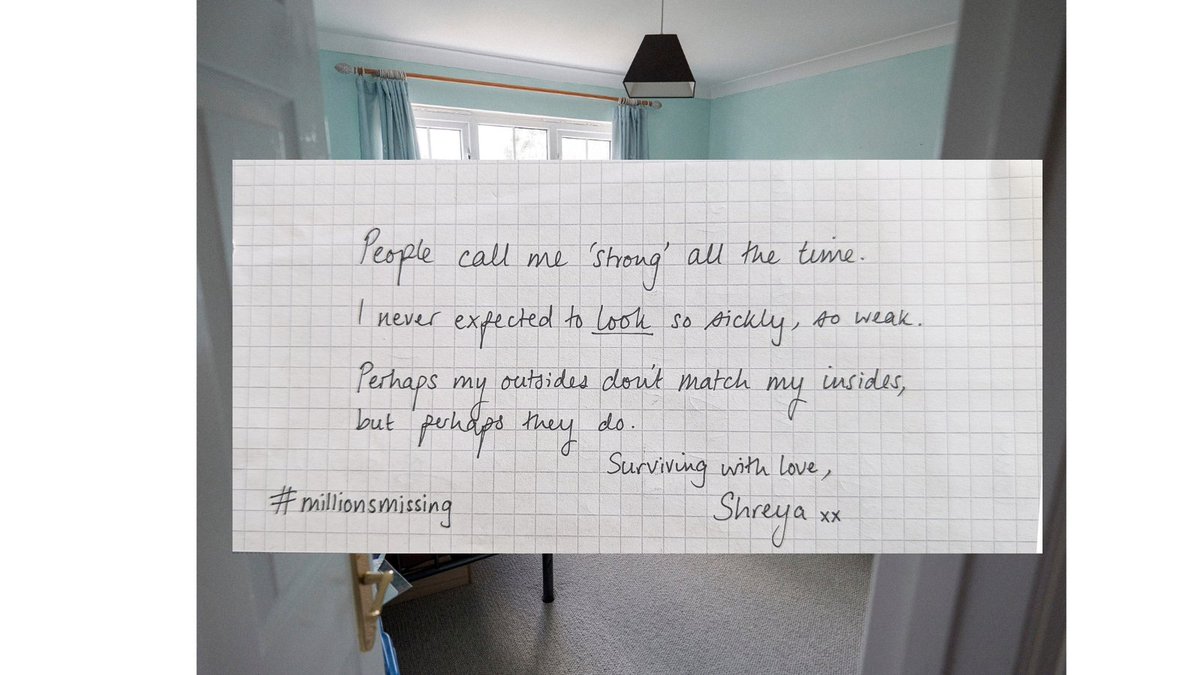 People call me 'strong' all the time.
I never expected to look so sickly, so weak.
Perhaps my outsides don't match my insides,
but perhaps they do.
Surviving with love,
Shreya xx
#millionsmissing